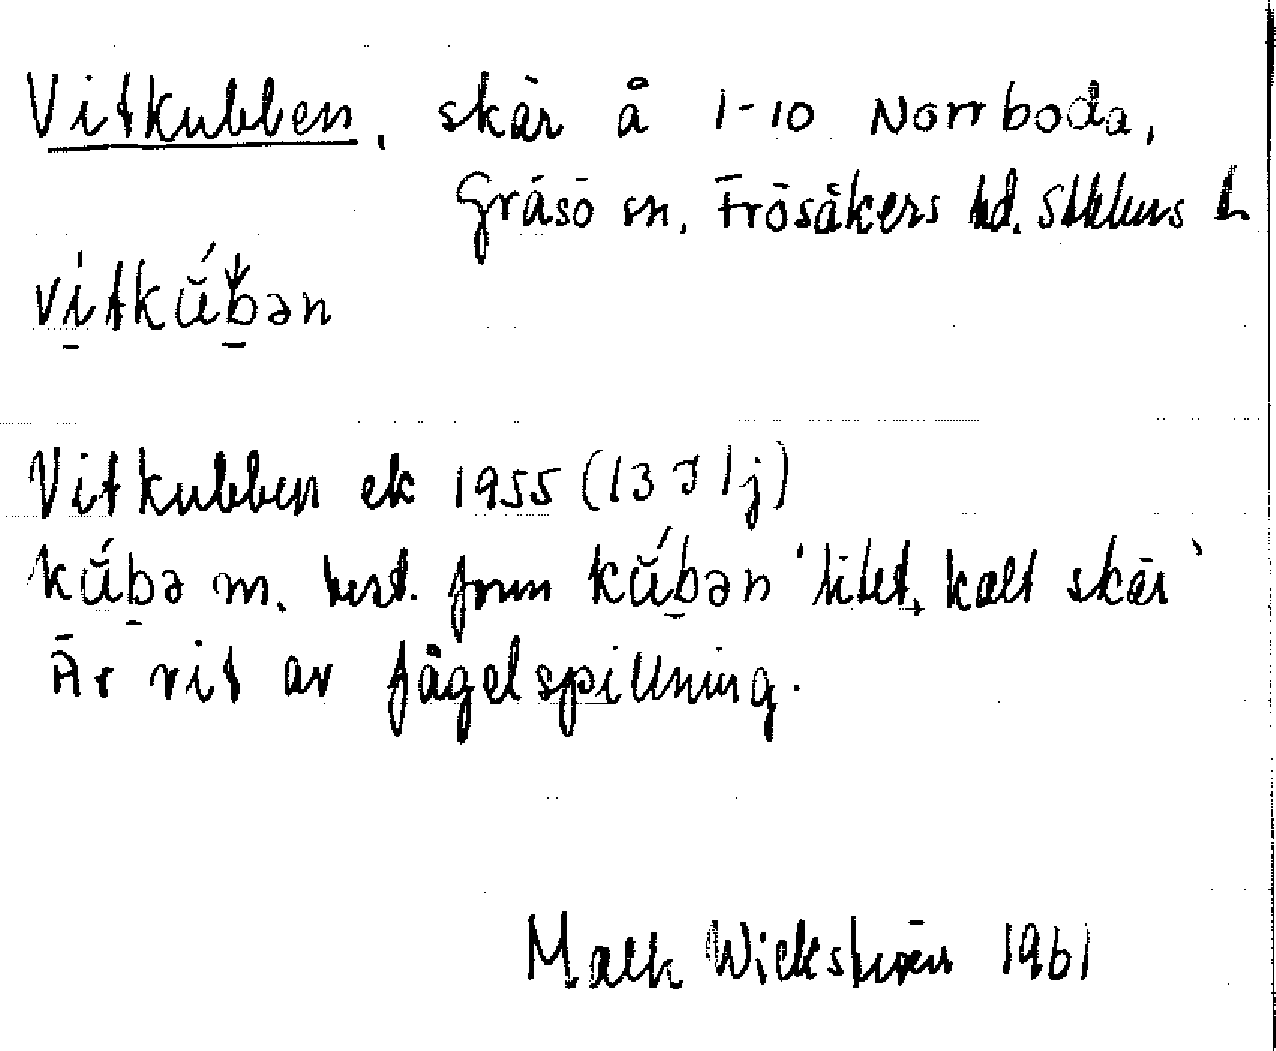 Vitkubben, skär å 1-10 Norrboda,
Gräsö sn, Frösåkers hd. Sthlms L
vitkŭ́bən
Vitkubben ek 1955 (13 I 1j)
kŭ́bə m. best. form kŭ́bən 'litet, kalt skär'
Är vit av fågelspillning.
Wickström 1961